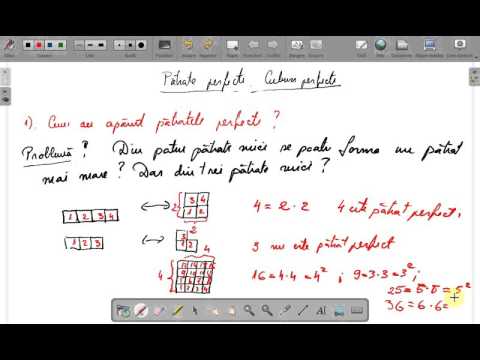 Pătrate perfecte _ Cuburi perfecte
1). Cum au apărut pătratele perfecte ?
Problemă : Din patru pătrate mici se poate forma un pătrat
mai mare ? Dar din trei pătrate mici ?
1 2 3 4
3 4
1 2
2
2
4 = 2 · 2 4 este pătrat perfect,
1 2 3
3
1 2
3 nu este pătrat perfect
4
4
16 = 4·4 = 4² ; 9 = 3·3 = 3² ;
25 = 5·5 = 5²
36 = 6·6=